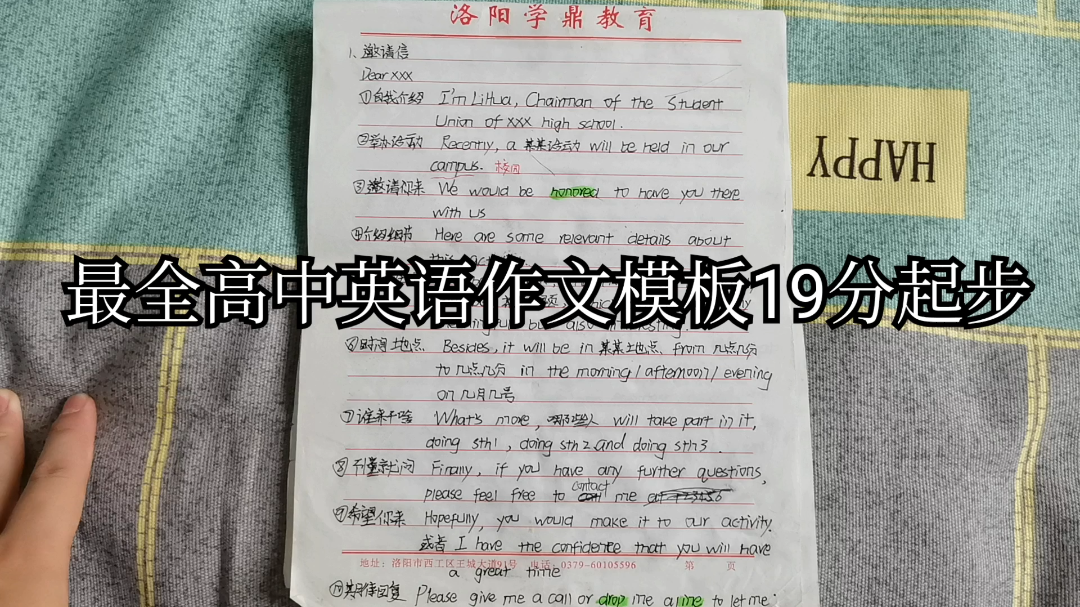 洛阳学鼎教育
1、邀请信
Dear xxx
①自我介绍 I'm LiHua, Chairman of the Student
Union of xxx high school.
②举办活动 Recently, a 某某活动 will be held in our
campus. 校园
③邀请你来 We would be honored to have you there
with us
④介绍细节 Here are some relevant details about
最全高中英语作文模板19分起步
⑥时间地点 Besides, it will be in 某某地点, from 几点几分
to 几点几分 in the morning / afternoon / evening
on 几月几号
⑦谁来干啥 What's more, 哪些人 will take part in it,
doing sth1, doing sth2 and doing sth3.
⑧不懂就问 Finally, if you have any further questions,
please feel free to contact me
⑨希望你来 Hopefully, you would make it to our activity.
或者 I have the confidence that you will have
地址：洛阳市西工区王城大道91号 电话：0379-60105596 第 页
a great time
⑩期待回复 Please give me a call or drop me a line to let me
HAPPY